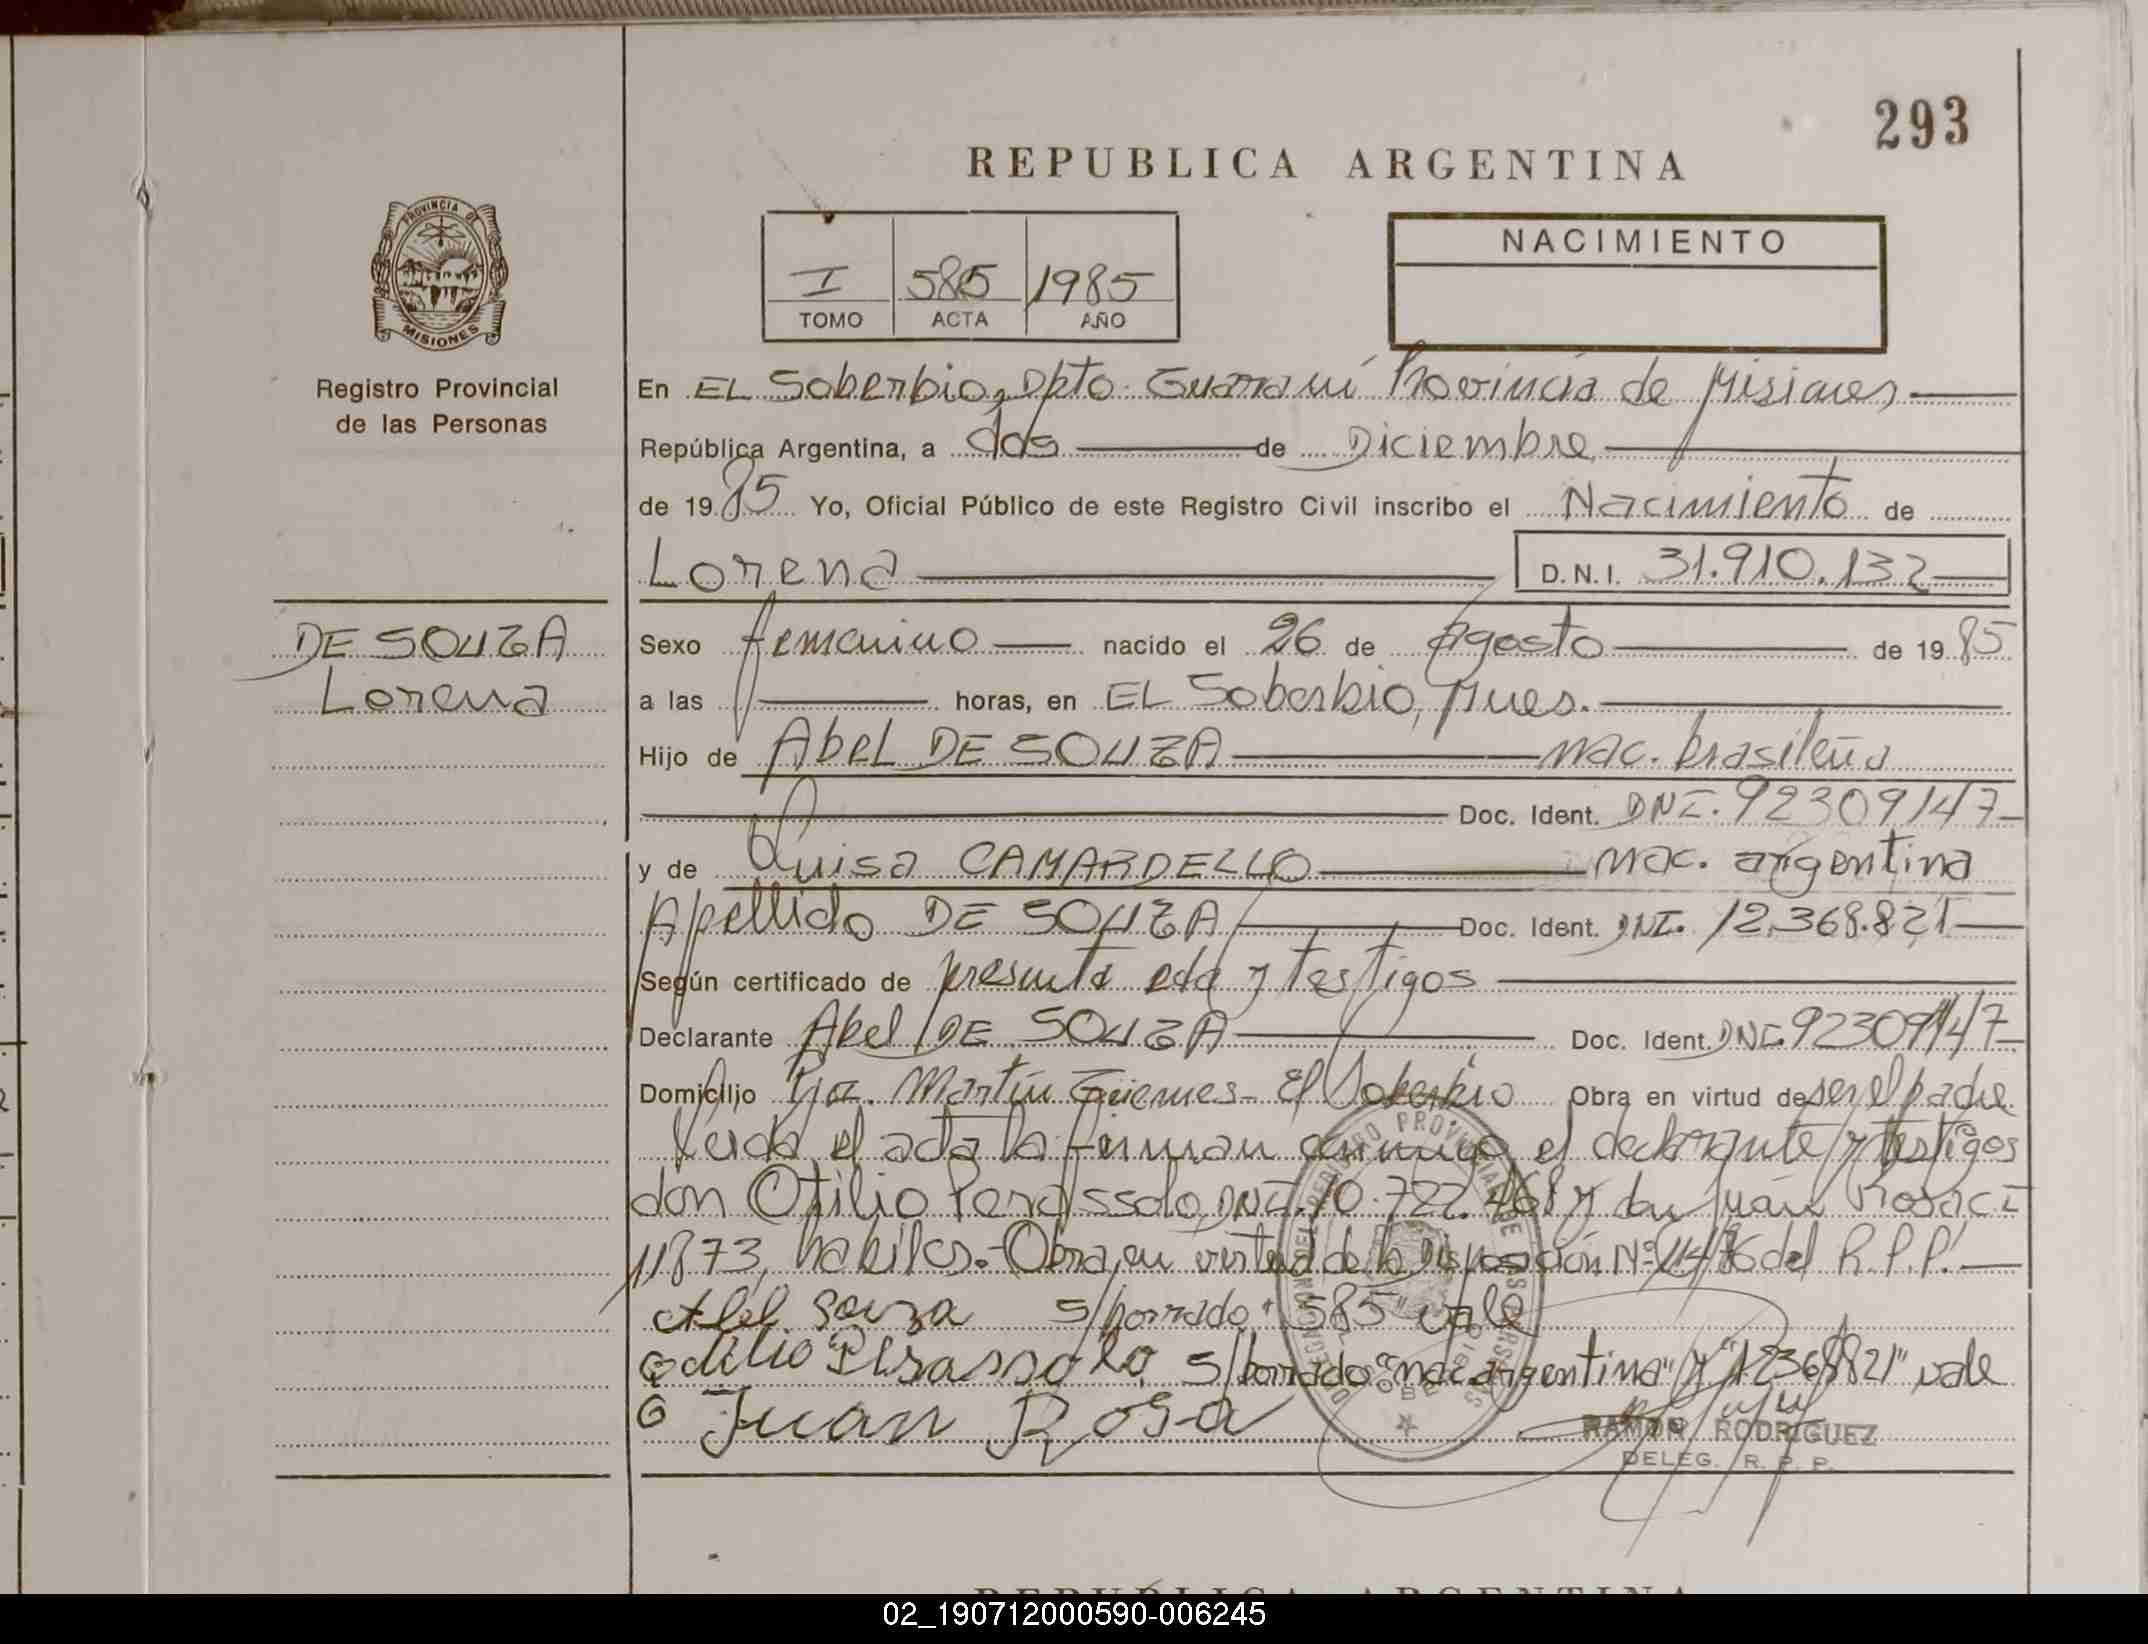 293
REPUBLICA ARGENTINA
PROVINCIA DE
MISIONES
Registro Provincial
de las Personas
I 585 1985
TOMO ACTA AÑO
NACIMIENTO
En EL Soberbio, Dpto. Guaraní Provincia de Misiones,
República Argentina, a dos de Diciembre
de 1985 Yo, Oficial Público de este Registro Civil inscribo el Nacimiento de
Lorena D.N.I. 31.910.132
DE SOUZA
Lorena
Sexo femenino nacido el 26 de Agosto de 1985
a las horas, en EL Soberbio, Mnes.
Hijo de Abel DE SOUZA nac. brasileña
Doc. Ident. DNI. 92309147
y de Luisa CAMARDELLO nac. argentina
Apellido DE SOUZA Doc. Ident. DNI. 12.368.821
Según certificado de presunta eda y testigos
Declarante Abel DE SOUZA Doc. Ident. DNI. 92309147
Domicilio Pje. Martín Güemes - El Soberbio Obra en virtud de ser el padre
Leida el acta la firman conmigo el declarante y testigos
don Otilio Perassolo, DNI. 10.722.468 y don Juán Rosa CI
11873, habiles.- Obra en virtud de la Disposición Nº 114/76 del R.P.P.
Abel Souza s/borrado "585" vale
Odilio Perassolo s/borrado "nac. argentina" y "12368821" vale
Juan Rosa
RAMON RODRIGUEZ
DELEG. R. P. P.
REPUBLICA ARGENTINA
02_190712000590-006245